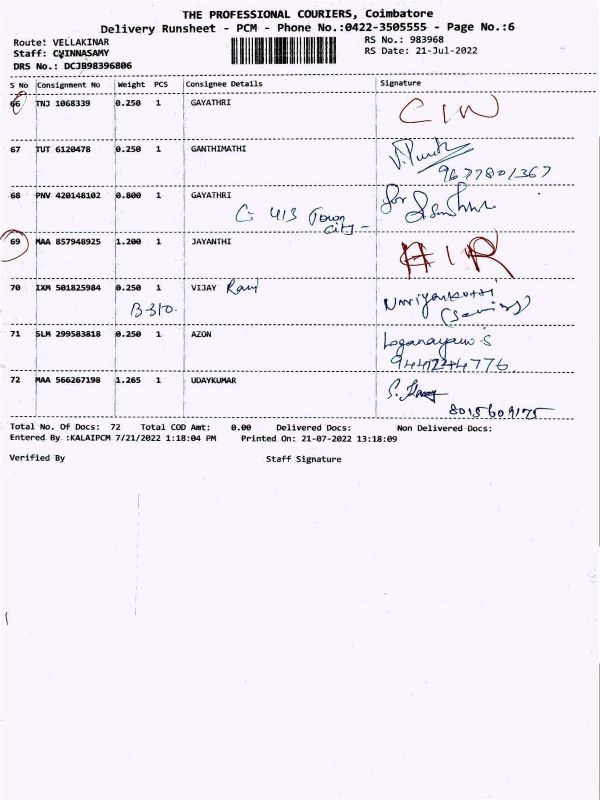 THE PROFESSIONAL COURIERS, Coimbatore
Delivery Runsheet - PCM - Phone No.:0422-3505555 - Page No.:6
Route: VELLAKINAR RS No.: 983968
Staff: CHINNASAMY RS Date: 21-Jul-2022
DRS No.: DCJB98396806
S No Consignment No Weight PCS Consignee Details Signature
66 TNJ 1068339 0.250 1 GAYATHRI CIN
67 TUT 6120478 0.250 1 GANTHIMATHI
9677801367
68 PNV 420148102 0.800 1 GAYATHRI for
C 413 Town
city -
69 MAA 857948925 1.200 1 JAYANTHI
70 IXM 501825984 0.250 1 VIJAY
B-310.
71 SLM 299583818 0.250 1 AZON
72 MAA 566267198 1.265 1 UDAYKUMAR
Total No. Of Docs: 72 Total COD Amt: 0.00 Delivered Docs: Non Delivered Docs:
Entered By :KALAIPCM 7/21/2022 1:18:04 PM Printed On: 21-07-2022 13:18:09
Verified By Staff Signature